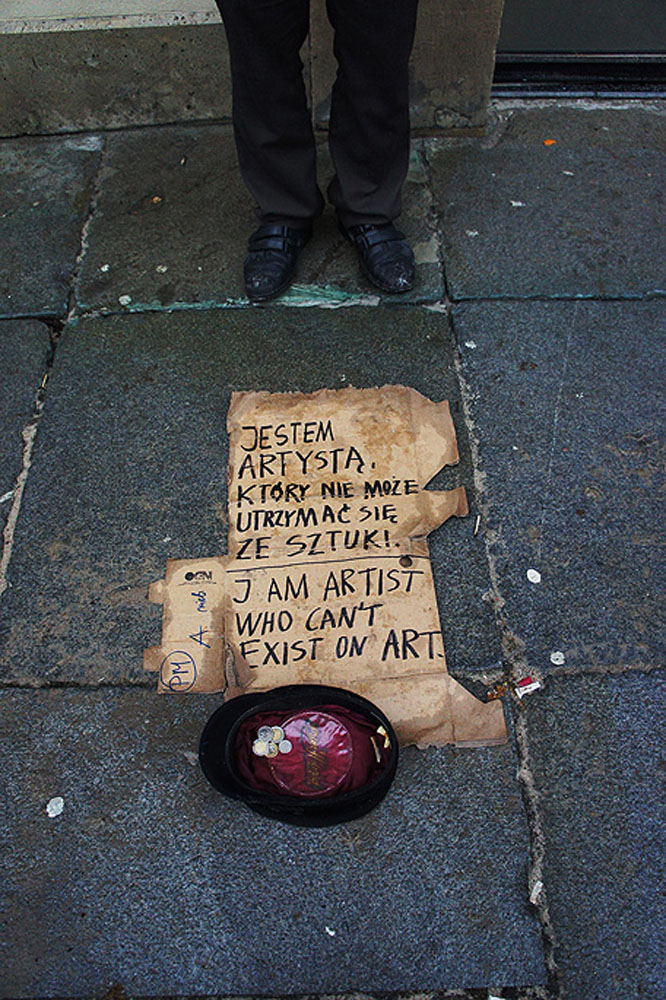 JESTEM
ARTYSTĄ,
KTÓRY NIE MOŻE
UTRZYMAĆ SIĘ
ZE SZTUKI.
I AM ARTIST
WHO CAN'T
EXIST ON ART.
PM
A.